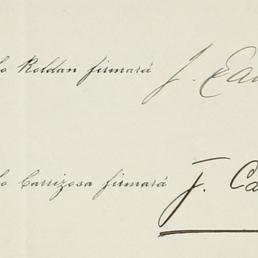 lo Roldan firmará J. Ea
lo Carrizosa firmará J. Ca